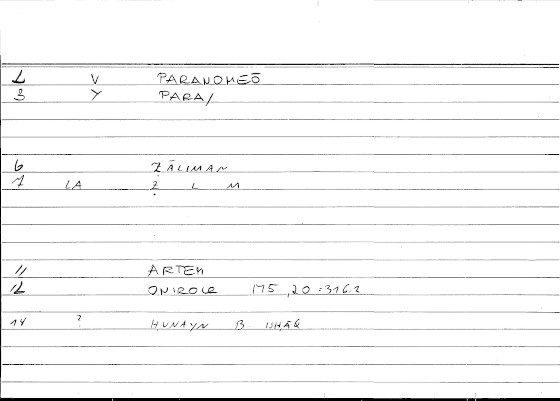 1 V PARANOMEŌ
3 Y PARA/
6 ẒĀLIMAN
7 LA Ẓ L M
11 ARTEM
12 ONIROCR 175,20=316.2
14 ? ḤUNAYN B ISḤĀQ